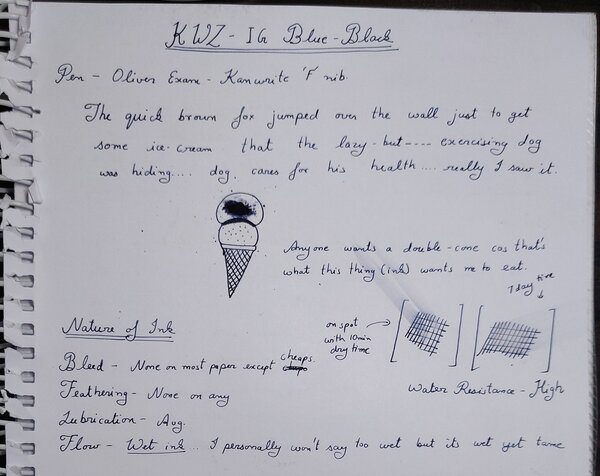 KWZ - IG Blue-Black
Pen - Oliver Exam - Kanwrite 'F' nib.
The quick brown fox jumped over the wall just to get
some ice-cream that the lazy-but---- exercising dog
was hiding.... dog, cares for his health .... really I saw it.
Anyone wants a double-cone cos that's
what this thing (ink) wants me to eat.
1 day time
on spot
with 10min
dry time
Water Resistance - High
Nature of Ink
Bleed - None on most paper except cheaps
Feathering - None on any
Lubrication - Avg.
Flow - Wet ink... I personally won't say too wet but its wet yet tame